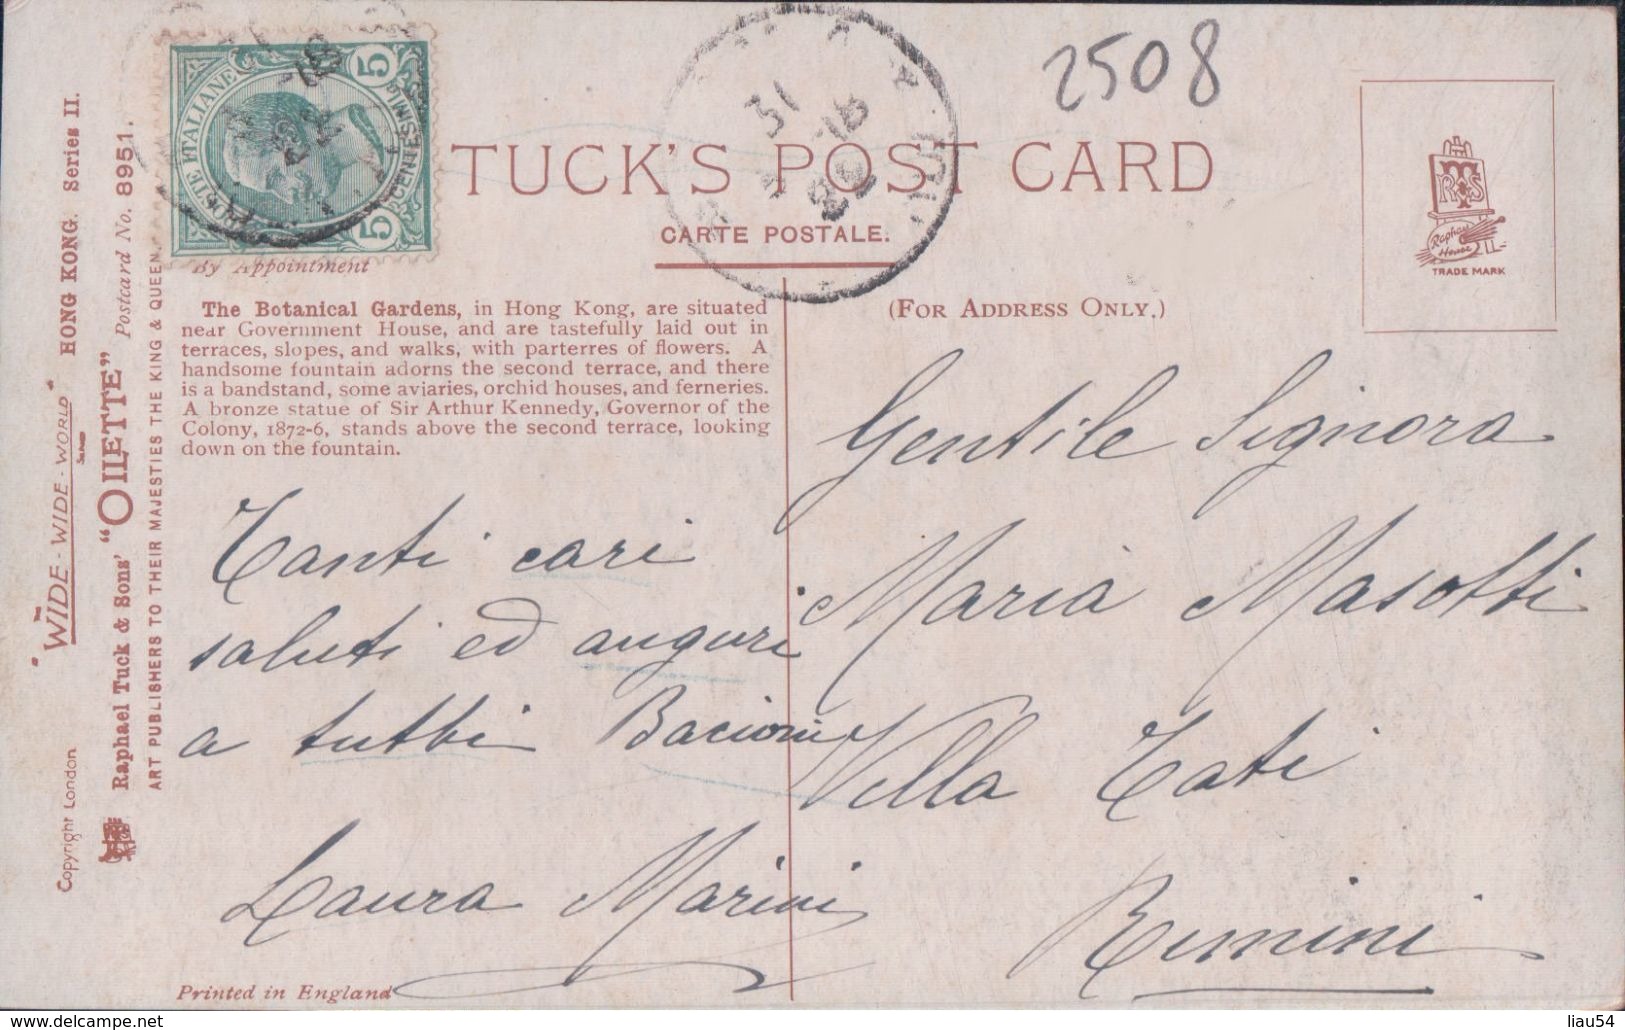 2508
POSTE ITALIANE
5
5
CENTESIMI
TUCK'S POST CARD
CARTE POSTALE.
(FOR ADDRESS ONLY.)
Raphael House
TRADE MARK
By Appointment
The Botanical Gardens, in Hong Kong, are situated
near Government House, and are tastefully laid out in
terraces, slopes, and walks, with parterres of flowers. A
handsome fountain adorns the second terrace, and there
is a bandstand, some aviaries, orchid houses, and ferneries.
A bronze statue of Sir Arthur Kennedy, Governor of the
Colony, 1872-6, stands above the second terrace, looking
down on the fountain.
Tanti cari
saluti ed auguri
a tutti Bacioni
Laura Marini
Gentile Signora
Maria Masotti
Villa Tati
Rimini
Printed in England
Copyright London
"WIDE-WIDE-WORLD"
HONG KONG. Series II.
Raphael Tuck & Sons' "OILETTE" Postcard No. 8951.
ART PUBLISHERS TO THEIR MAJESTIES THE KING & QUEEN.
www.delcampe.net
liau54